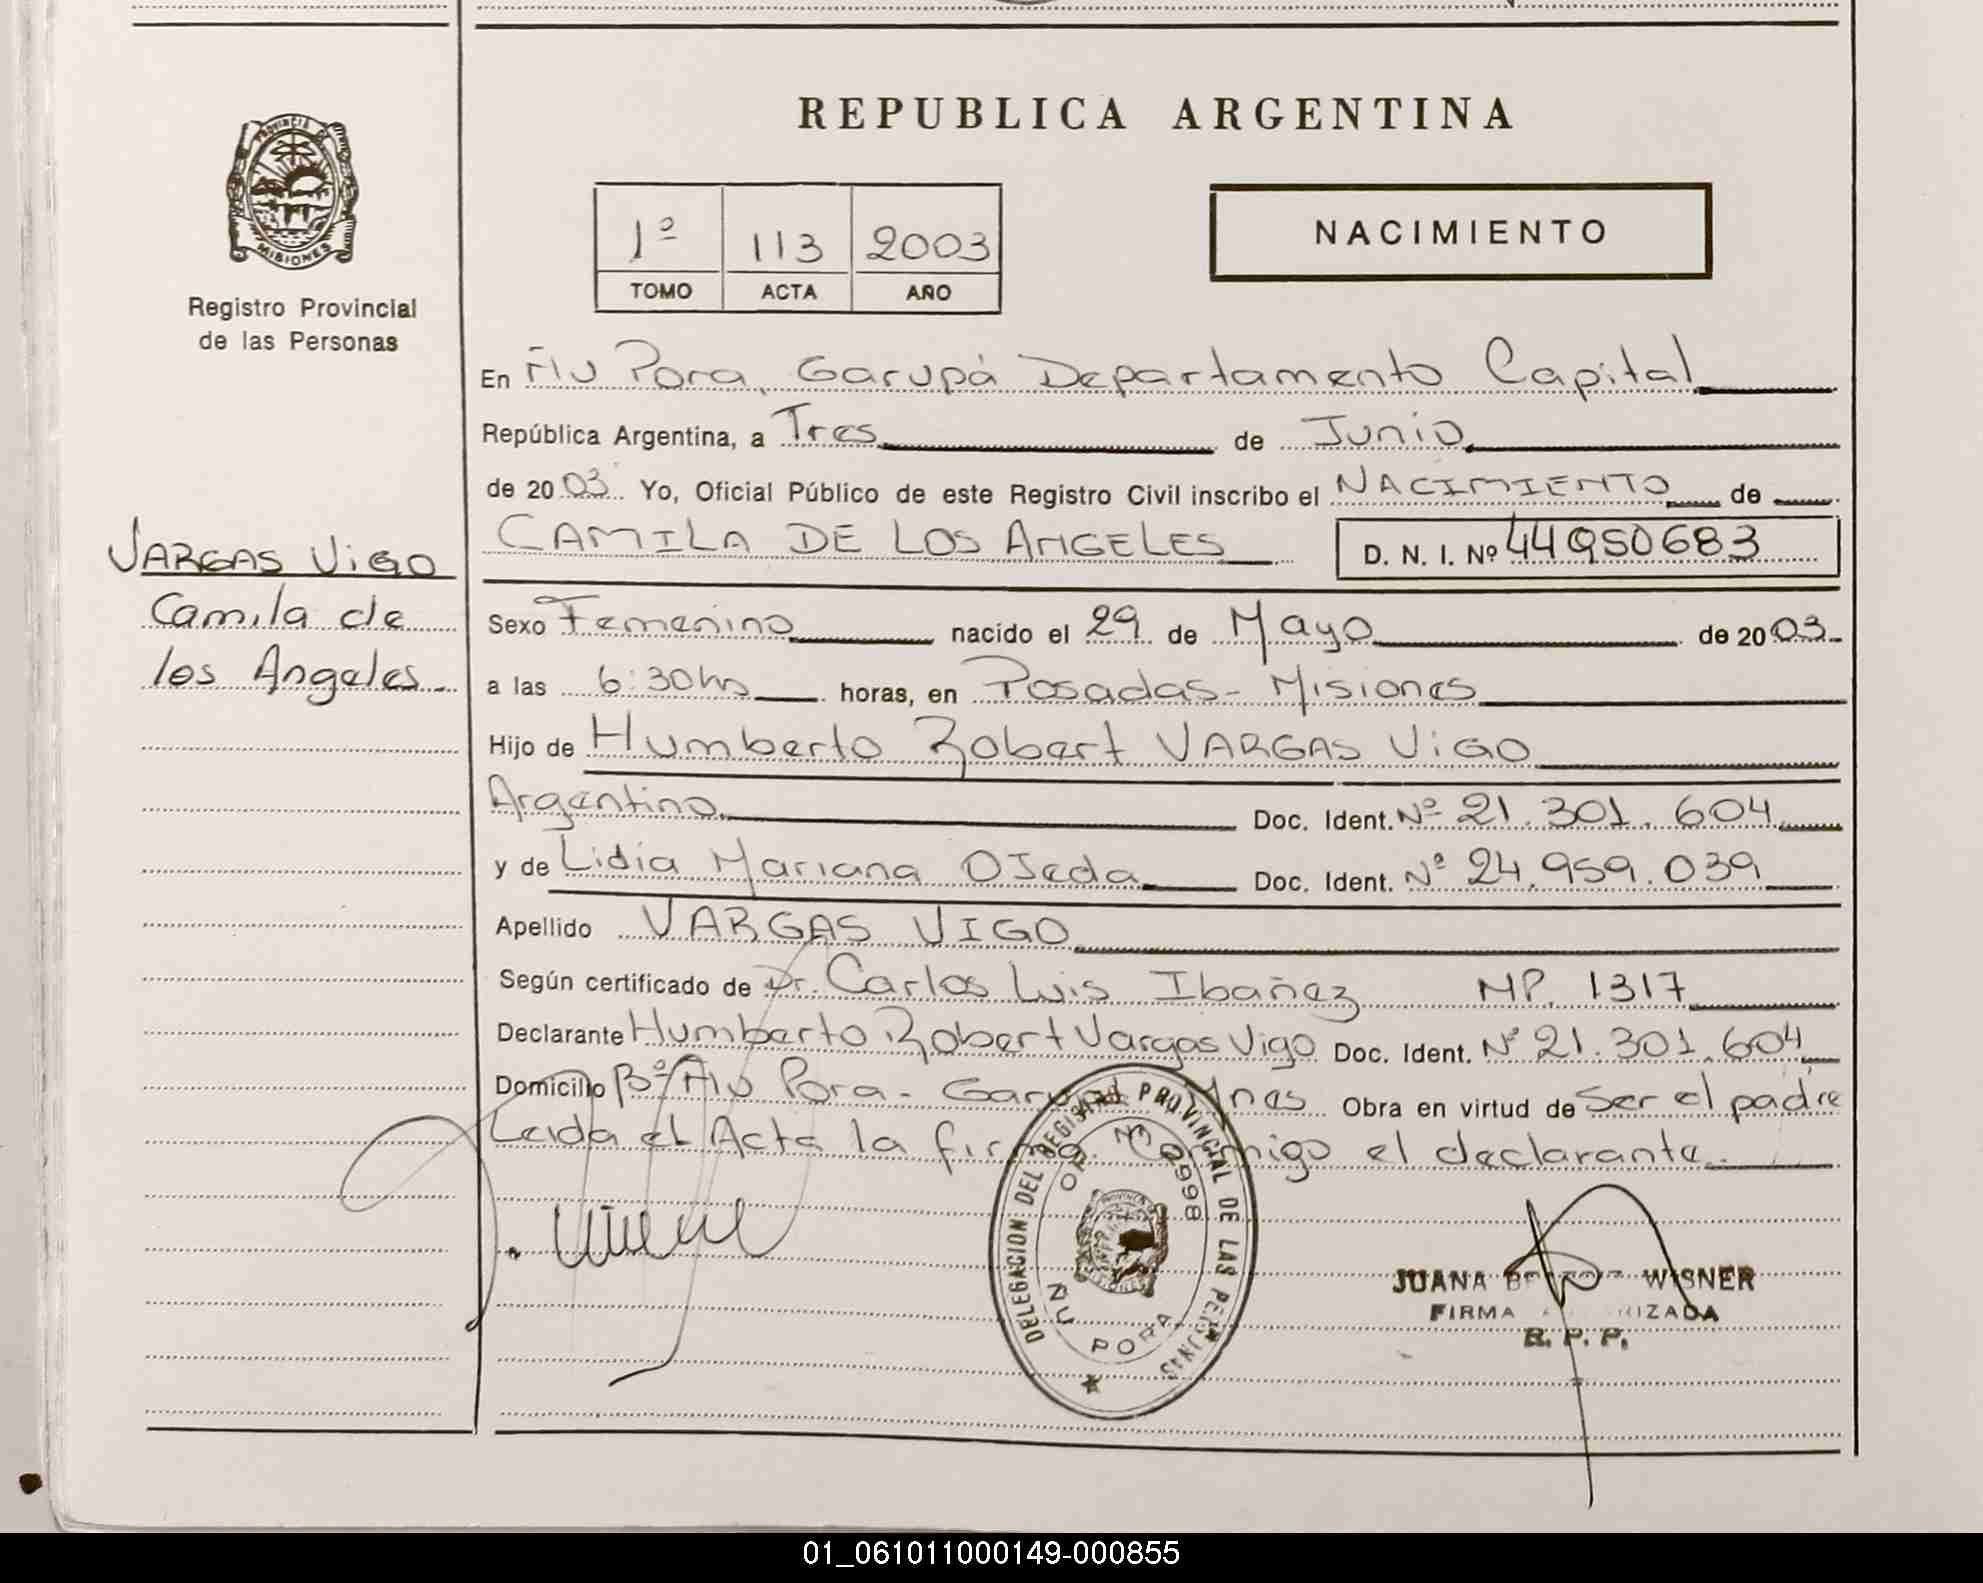 REPUBLICA ARGENTINA
PROVINCIA DE MISIONES
Registro Provincial
de las Personas
1º 113 2003
TOMO ACTA AÑO
NACIMIENTO
En Ñu Pora, Garupá Departamento Capital
República Argentina, a Tres de Junio
de 2003 Yo, Oficial Público de este Registro Civil inscribo el NACIMIENTO de
CAMILA DE LOS ANGELES D. N. I. Nº 44950683
VARGAS ViGO
Camila de
los Angeles
Sexo Femenino nacido el 29 de Mayo de 2003
a las 6:30hs horas, en Posadas - Misiones
Hijo de Humberto Robert VARGAS ViGO
Argentino Doc. Ident. Nº 21.301.604
y de Lidia Mariana OJeda Doc. Ident. Nº 24.959.039
Apellido VARGAS VIGO
Según certificado de Dr. Carlos Luis Ibañez MP. 1317
Declarante Humberto Robert Vargas Vigo Doc. Ident. Nº 21.301.604
Domicilio Bº Ñu Pora - Garupá Mnes Obra en virtud de Ser el padre
Leida el Acta la firma Conmigo el declarante
DELEGACION DEL REGISTRO PROVINCIAL DE LAS PERSONAS
Nº 8998
ÑU PORA
JUANA WISNER
FIRMA AUTORIZADA
R. P. P.
01_061011000149-000855